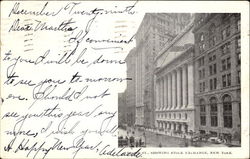 December Twenty-ninth
Dear Martha,
If convenient
to you I will be down
to see you to morrow
on. Should I not
see you this year any
more, I wish you
A Happy New Year,
Adelaide
SHOWING STOCK EXCHANGE, NEW YORK